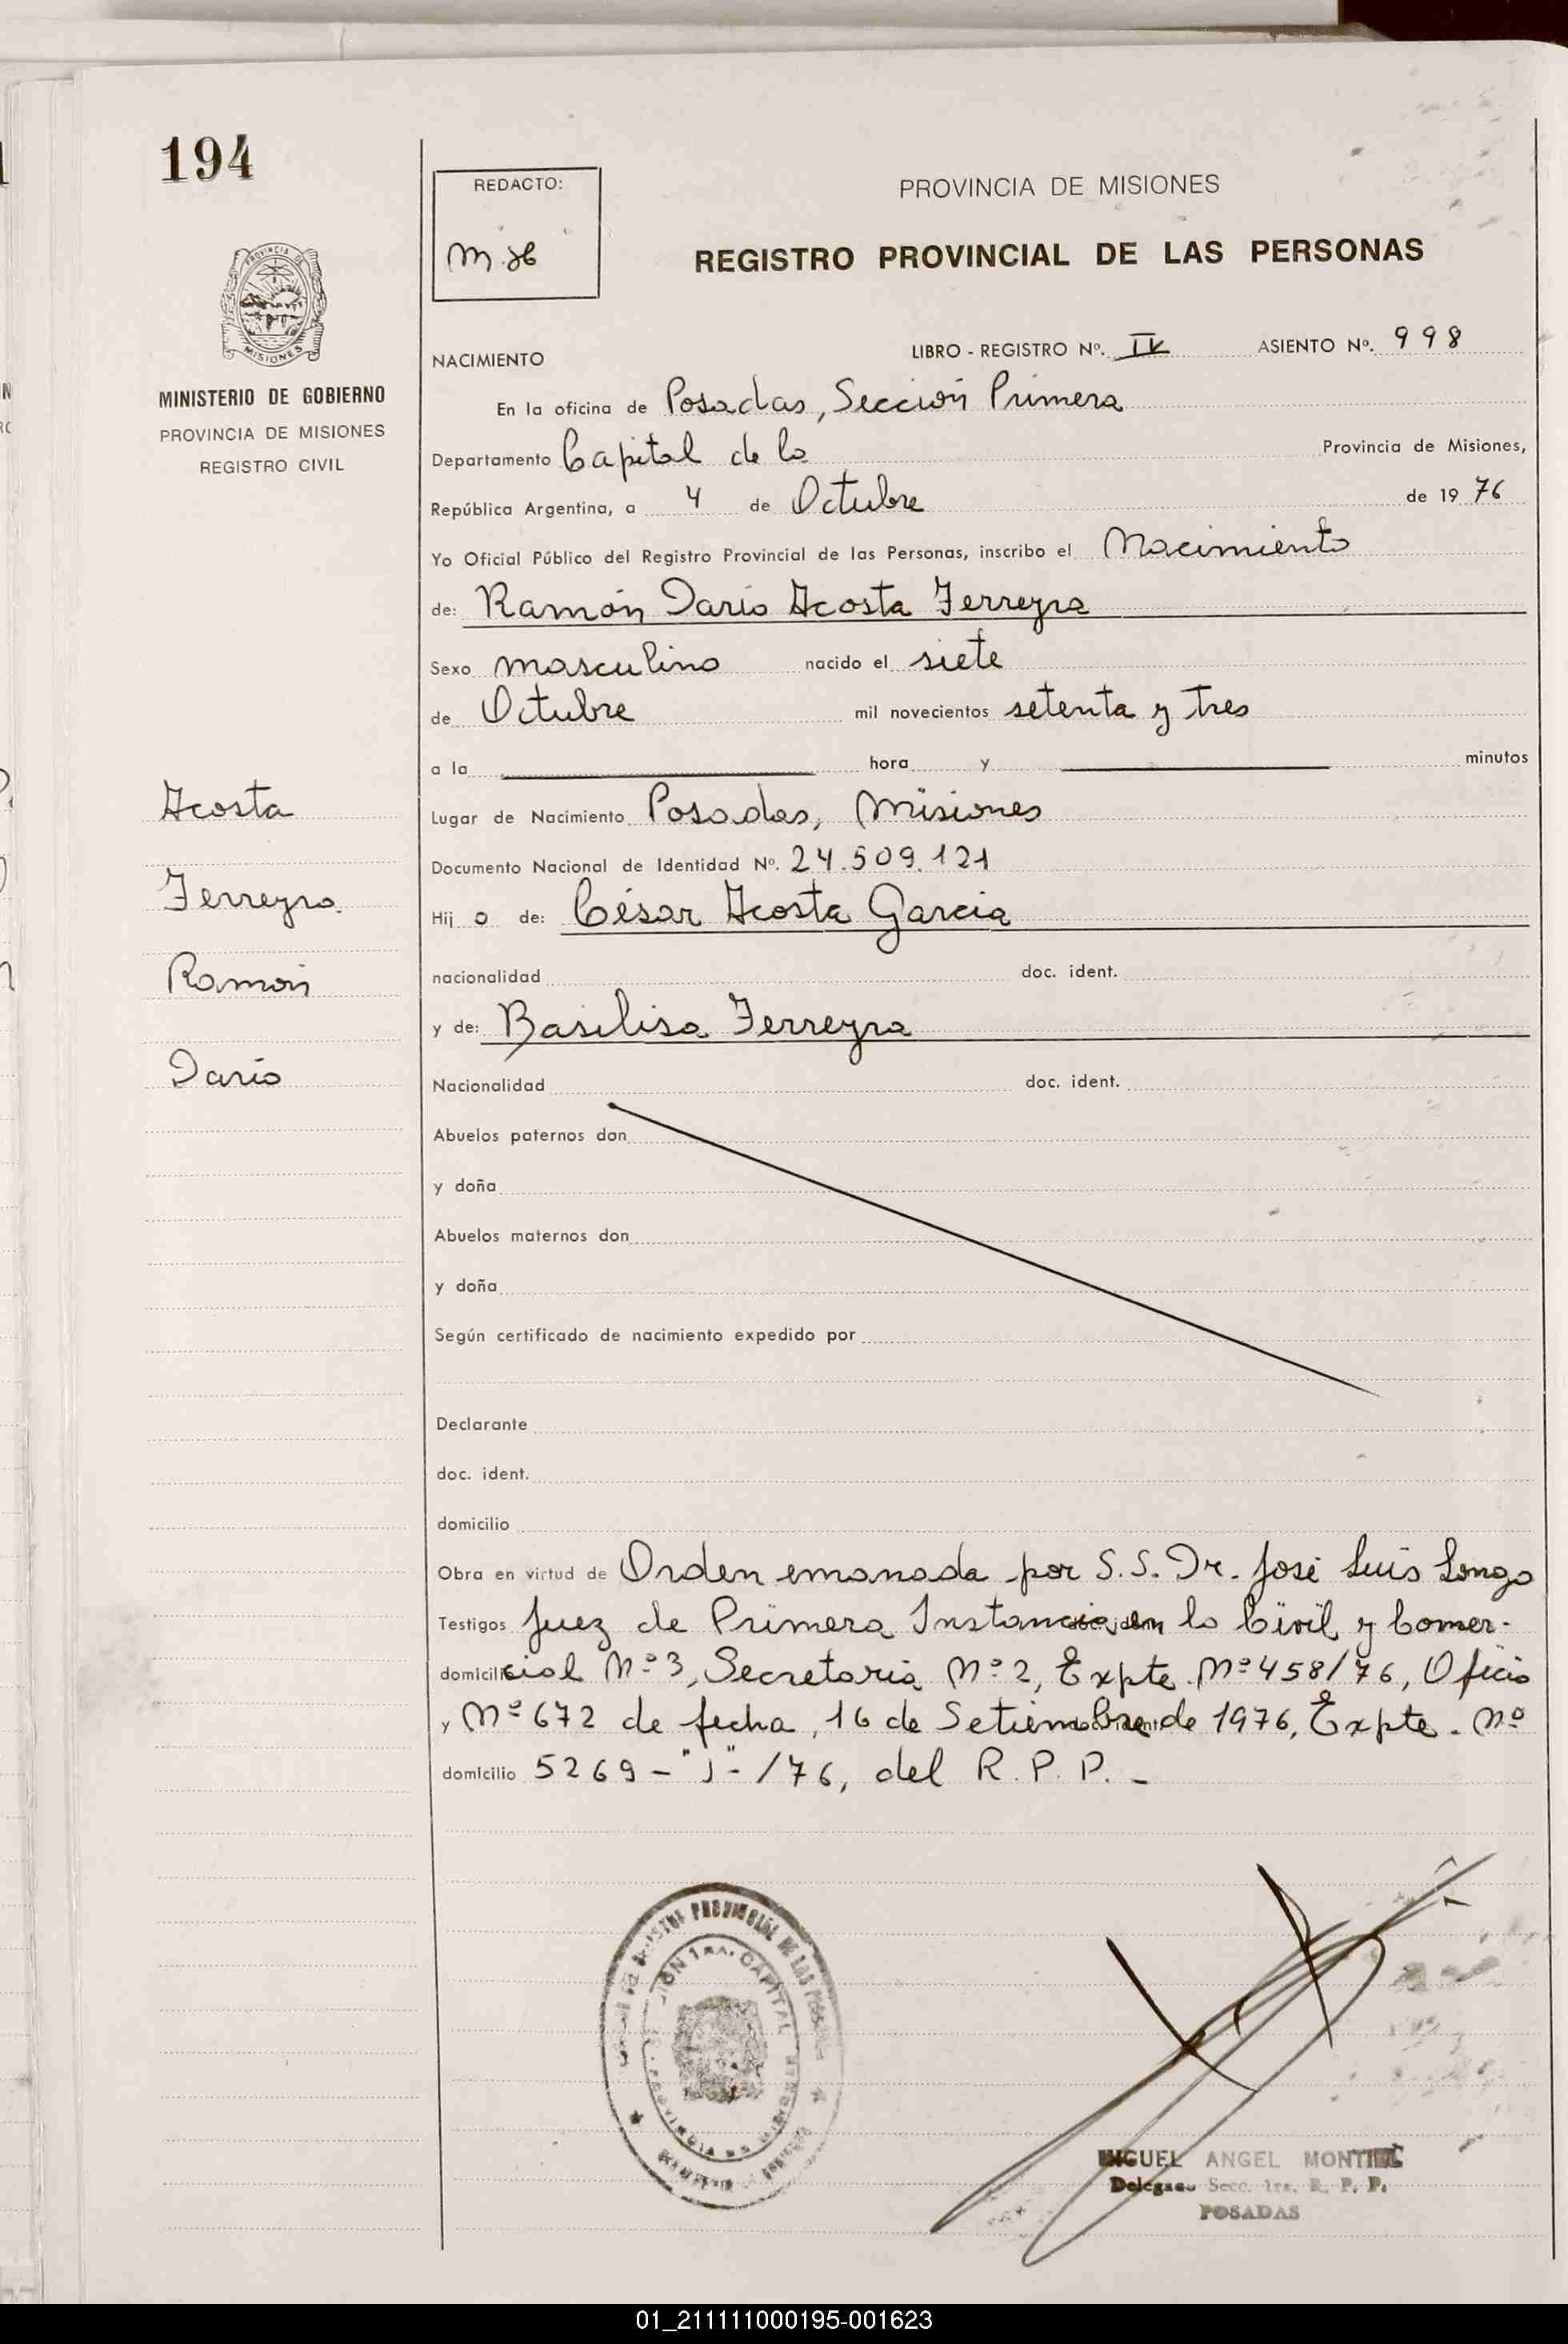 194
REDACTO:
PROVINCIA DE MISIONES
REGISTRO PROVINCIAL DE LAS PERSONAS
PROVINCIA DE
MISIONES
MINISTERIO DE GOBIERNO
PROVINCIA DE MISIONES
REGISTRO CIVIL
NACIMIENTO LIBRO - REGISTRO Nº. IV ASIENTO Nº. 998
En la oficina de Posadas, Sección Primera
Departamento Capital de la Provincia de Misiones,
República Argentina, a 4 de Octubre de 19 76
Yo Oficial Público del Registro Provincial de las Personas, inscribo el Nacimiento
de: Ramón Darío Acosta Ferreyra
Sexo masculino nacido el siete
de Octubre mil novecientos setenta y tres
a la hora y minutos
Acosta
Lugar de Nacimiento Posadas, Misiones
Documento Nacional de Identidad Nº. 24.509.121
Ferreyra
Hij o de: César Acosta Garcia
Ramón
nacionalidad doc. ident.
y de: Basilisa Ferreyra
Darío
Nacionalidad doc. ident.
Abuelos paternos don
y doña
Abuelos maternos don
y doña
Según certificado de nacimiento expedido por
Declarante
doc. ident.
domicilio
Obra en virtud de Orden emanada por S.S. Dr. José Luis Longo
Testigos Juez de Primera Instancia en lo Civil y Comer-
domicilio cial Nº 3, Secretaria Nº 2, Expte. Nº 458/76, Oficio
y Nº 672 de fecha, 16 de Setiembre de 1976, Expte. Nº
domicilio 5269-"J"-/76, del R.P.P.-
PROVINCIAL DE LAS
1ra. CAPITAL
MIGUEL ANGEL
Delegado Secc. 1ra. R. P. P.
POSADAS
01_211111000195-001623